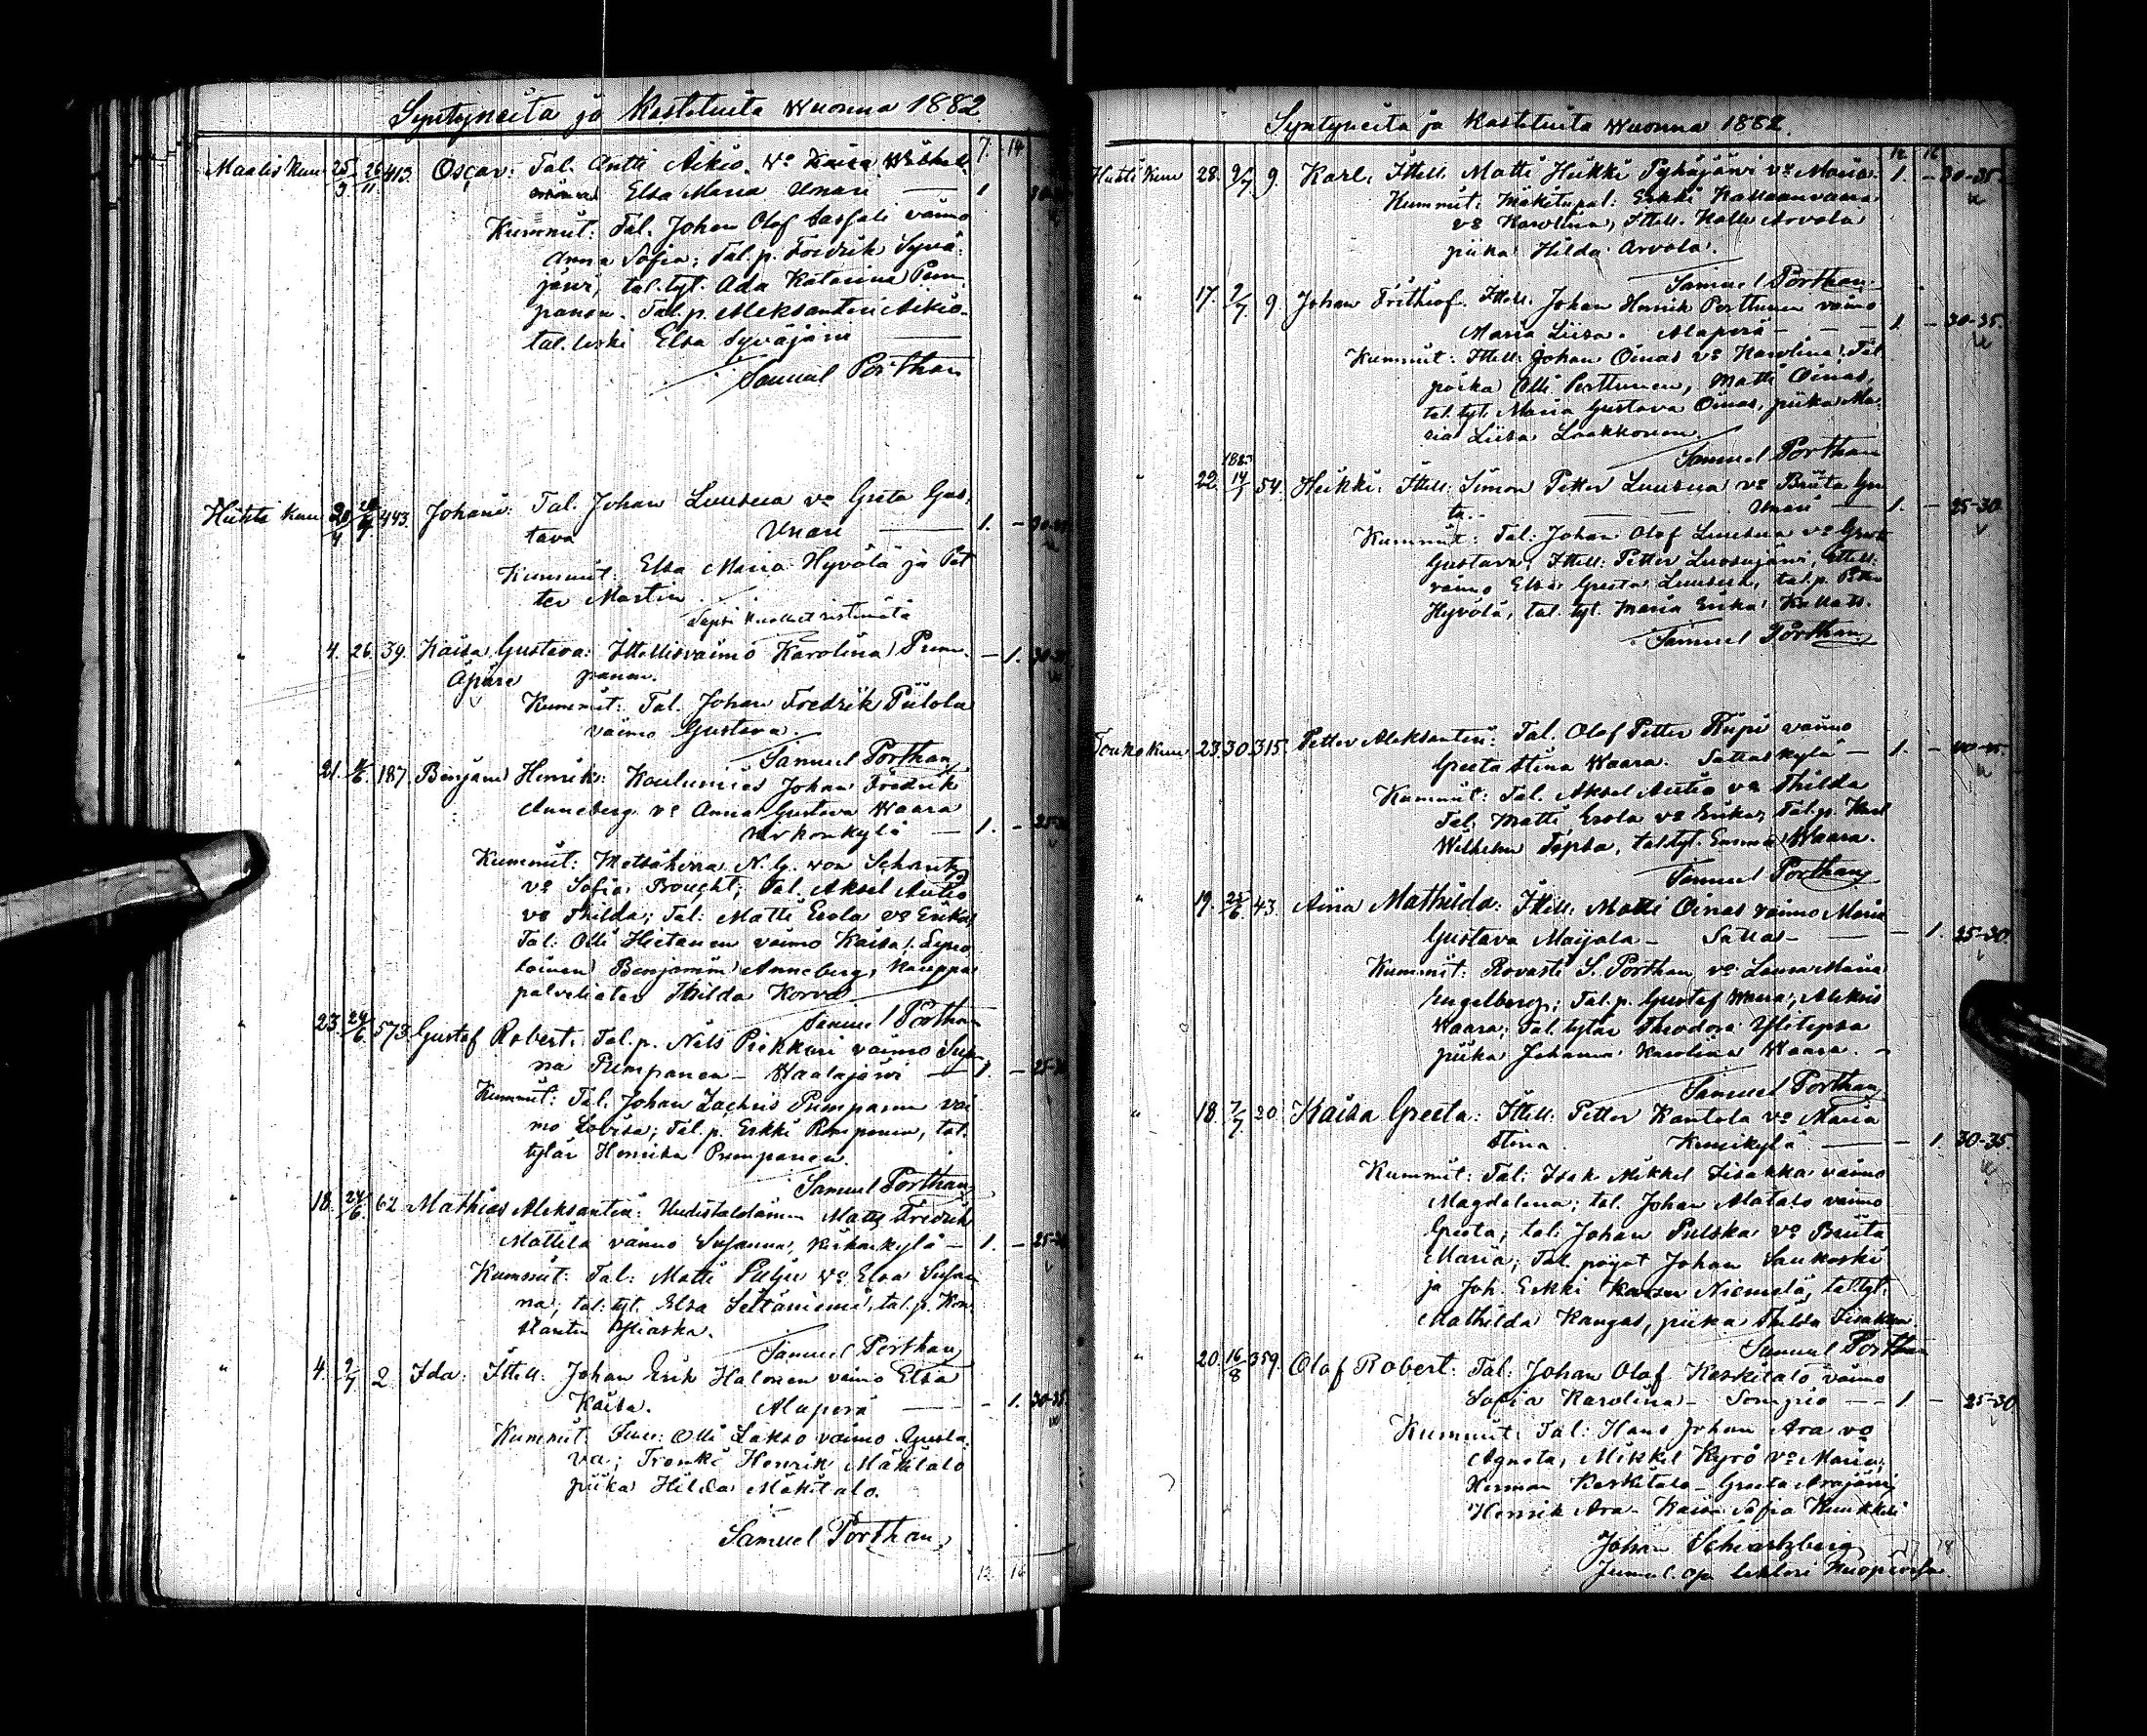 Syntyneitä ja Kastetuita Wuonna 1882.
7. 14
Maalis Kuu 25/3 26/11 413. Oscar: Tal. Antti Aikio. vo Kaisa
Elsa Maria Unari — 1
Kummit: Tal. Johan Olof vaimo
Anna Sofia; Tal. p. Fredrik Syvä-
järvi, tal. tyt. Ada Katarina Pum-
panen. Tal. p. Aleksanteri Aikio.
tal. leski Elsa Syväjärvi
Samuel Porthan
Huhti Kuu 443. Johan: Tal. Johan Luusua vo Greta Gus-
tava Unari — 1. -
Kummit: Elsa Maria Hyvölä ja Pet-
ter Martin.
kuollut ristimätä
" 4. 26. 39. Kaisa Gustava: Ittellisvaimo Karolina Pum- — 1.
Äpäre panen.
Kummit: Tal. Johan Fredrik Piilola
vaimo Gustava.
Samuel Porthan
" 21. 187. Benjam Henrik: Koulumies Johan Fredrik
Anneberg vo Anna Gustava Waara
kylä — 1. -
Kummit: Metsäherra N. G. von Schantz
vo Sofia Prought; Tal. Aksel Autio
vo Thilda; Tal: Matti Erola vo Erika;
Tal: Olli Hietanen vaimo Kaisa;
Benjamin Anneberg, kauppa-
palveliatar Thilda Korva
Samuel Porthan
" 23. 24/6 573. Gustaf Robert: Tal. p. Nils Peikkari vaimo
na Pumpanen — Waalajärvi — 1. -
Kummit: Tal. Johan Zachris Pumpanen vai-
mo Lovisa; Tal. p. Erkki Pumpanen, tal.
tytär Henrika Pumpanen.
Samuel Porthan
" 18. 24/6 62 Mathias Aleksanteri: Uudistalolainen Matti Fredrik
Mattila vaimo Susanna, kylä — 1. -
Kummit: Tal: Matti vo Elsa Susan-
na; tal. tyt. Elsa Seitäniemi, tal. p. Kon-
stantin
Samuel Porthan
" 4. 9/7 2. Ida: Ittell. Johan Erik Halonen vaimo Elsa
Kaisa. Alaperä — - 1. 30-35.
Kummit: Olli Lakso vaimo Gusta-
va; Trenki Henrik Mäkitalo
piika Hilda Mäkitalo.
Samuel Porthan
12. 16
Syntyneitä ja Kastetuita Wuonna 1882.
12 16
Huhti Kuu 28. 9/7 9. Karl: Ittell. Matti Heikki Pyhäjärvi vo Maria. 1. - 30-35.
Kummit: Mäkitupal: Erkki
vo Karolina, Ittell. Kalle Arvola
piika Hilda Arvola.
Samuel Porthan
" 17. 9/7 9. Johan Frithiof. Ittell. Johan Henrik Perttunen vaimo
Maria Liisa. Alaperä — 1 - 30-35.
Kummit: Ittell: Johan Oinas vo Karolina; Tal.
poika Olli Perttunen, Matti Oinas,
tal. tyt. Maria Gustava Oinas, piika Ma-
ria Liisa Laakkonen.
Samuel Porthan
" 22. 14/1 54. Heikki: Ittell: Simon Petter Luusua vo Briita Gre-
ta. — Unari — 1. - 25-30.
Kummit: Tal: Johan Olof Luusua vo Greta
Gustava; Ittell: Petter
vaimo Elsa Greta Luusua, tal. p. Petter
Hyvölä, tal. tyt. Maria Erika
Samuel Porthan
Touko Kuu 23. 30. 315. Petter Aleksanteri: Tal. Olof Petter Riipi vaimo
Greeta Stina Waara. Sattaskylä — 1. - 40-45.
Kummit: Tal. Aksel Autio vo Thilda
Tal. Matti Erola vo Erika, Tal. p. Karl
Wilhelm Töpsa, tal. tyt. Emma Waara.
Samuel Porthan
" 19. 25/6 43. Aina Mathilda: Ittell: Matti Oinas vaimo Maria
Gustava Maijala — Sattas — - 1. 25-30.
Kummit: Rovasti S. Porthan vo Laura Maria
Engelberg; Tal. p. Gustaf Waara, Aleksis
Waara; Tal. tytär Theodora Ylitepsa
piika Johanna Karolina Waara. -
Samuel Porthan
" 18. 7/7 20 Kaisa Greeta: Ittell: Petter Kantola vo Maria
Stina. kylä — - 1. 30-35.
Kummit: Tal: Isak Mikkel Iisakka vaimo
Magdalena; tal. Johan Alatalo vaimo
Greta; tal. Johan Pulska vo Briita
Maria; Tal. pojat Johan Saukoski
ja Joh. Erkki Niemelä; tal. tyt.
Mathilda Kangas, piika Thilda
Samuel Porthan
" 20. 16/8 359. Olof Robert: Tal: Johan Olof Keskitalo vaimo
Sofia Karolina — Sompio — 1 - 25-30
Kummit: Tal: Hans Johan Ara vo
Agneta, Mikkel Kyrö vo Maria;
Herman Keskitalo — Greeta Arajärvi
Henrik Ara — Kaisa Sofia
Johan Schwartzberg
Jumal. op. lehtori Kuopiossa.